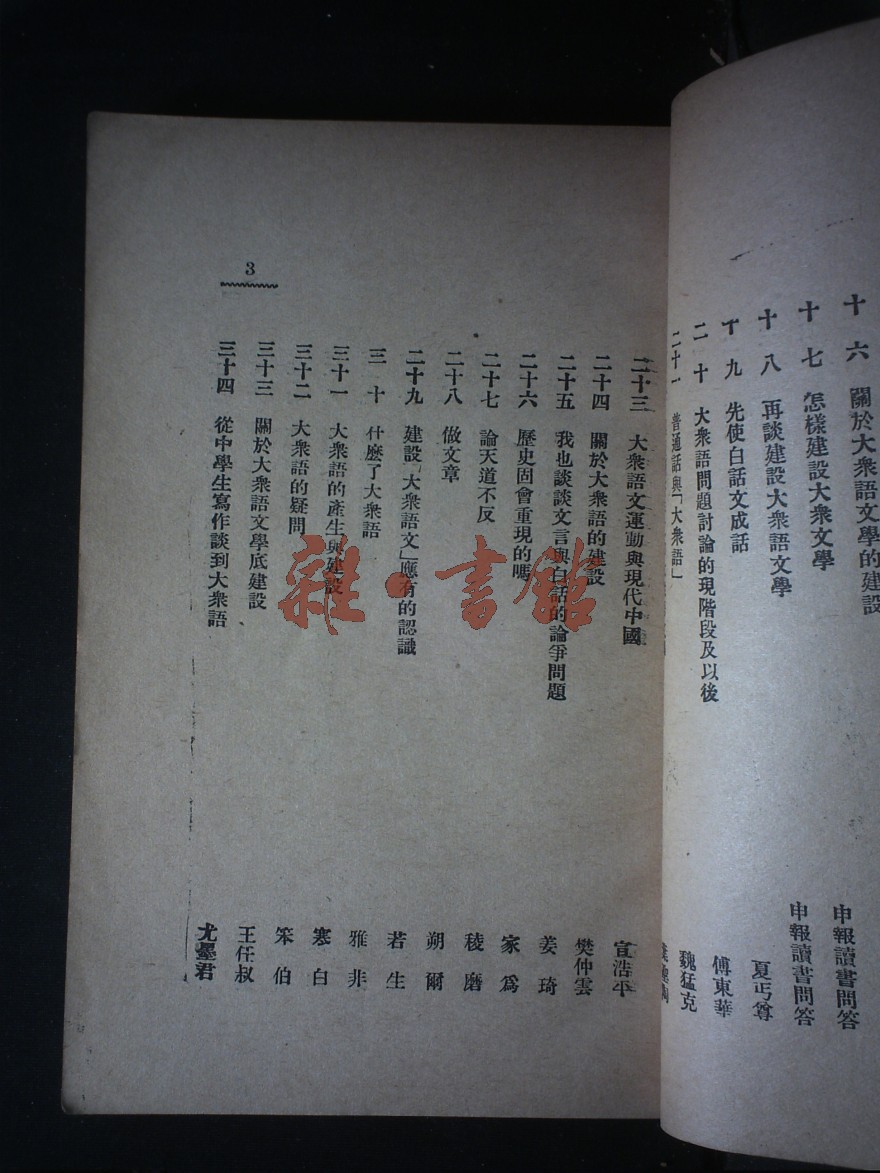 十六 關於大衆語文學的建設
十七 怎樣建設大衆文學 申報讀書問答
十八 再談建設大衆語文學 申報讀書問答
十九 先使白話文成話 夏丏尊
二十 大衆語問題討論的現階段及以後 傅東華
二十一 普通話與「大衆語」 魏猛克
二十三 大衆語文運動與現代中國 宣浩平
二十四 關於大衆語的建設 樊仲雲
二十五 我也談談文言與白話的論爭問題 姜琦
二十六 歷史固會重現的嗎 家爲
二十七 論天道不反 稜磨
二十八 做文章 朔爾
二十九 建設「大衆語文」應有的認識 若生
三十 什麼了大衆語 雅非
三十一 大衆語的產生與建設 寒白
三十二 大衆語的疑問 笨伯
三十三 關於大衆語文學底建設 王任叔
三十四 從中學生寫作談到大衆語 尤墨君
3
雜·書館